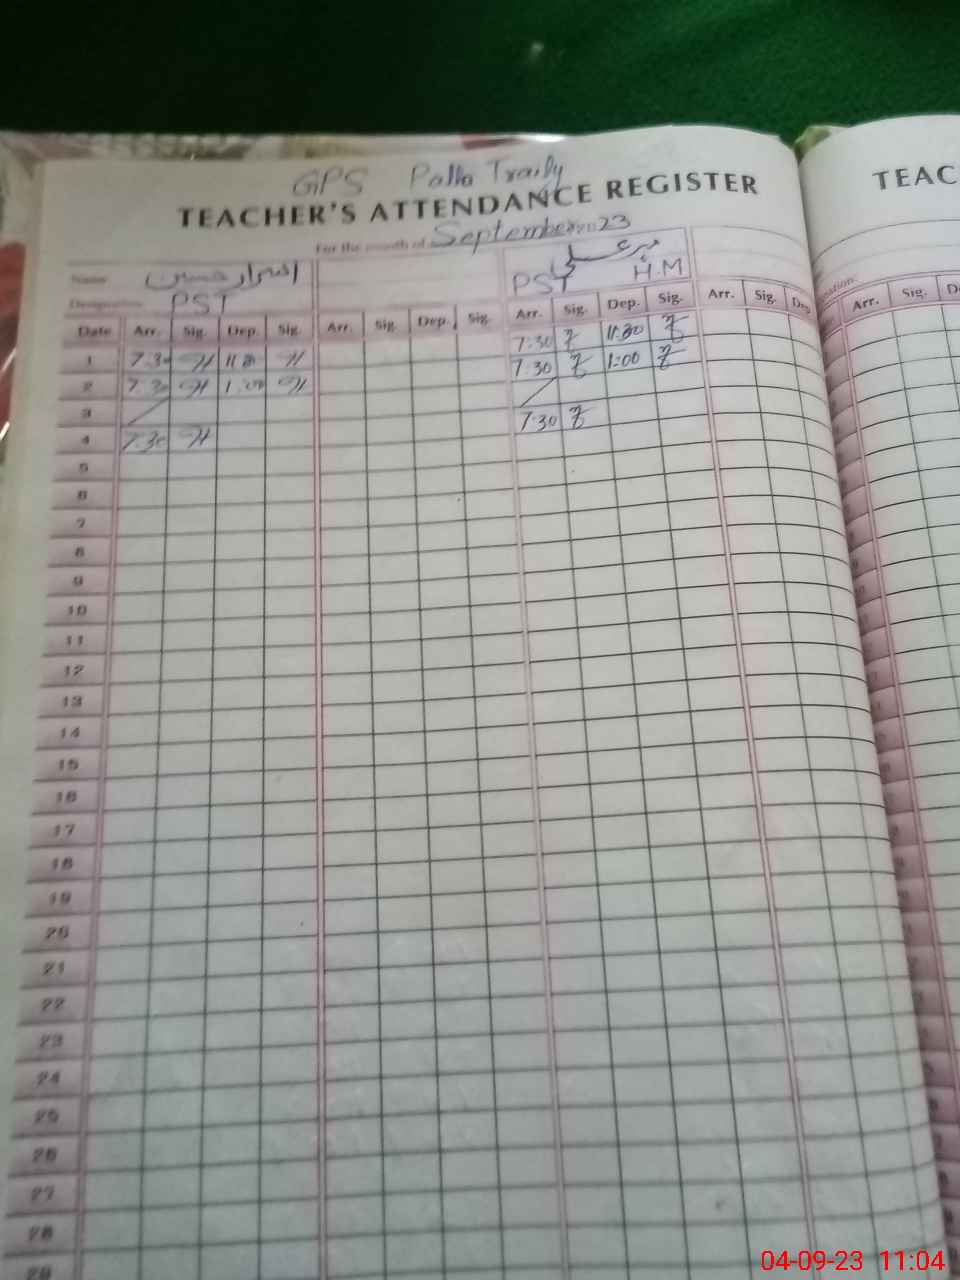 GPS Palla Traily
TEACHER'S ATTENDANCE REGISTER TEAC
For the month of September 2023
Name اسرار حسین میر علی
Designation PST PST H.M
Date Arr. Sig. Dep. Sig. Arr. Sig. Dep. Sig. Arr. Sig. Dep. Sig. Arr. Sig. Dep Arr. Sig. D
1 7.30 11.30 7:30 11:30
2 7.30 1:00 7:30 1:00
3
4 7.30 7:30
5
6
7
8
9
10
11
12
13
14
15
16
17
18
19
20
21
22
23
24
25
26
27
28
29
04-09-23 11:04